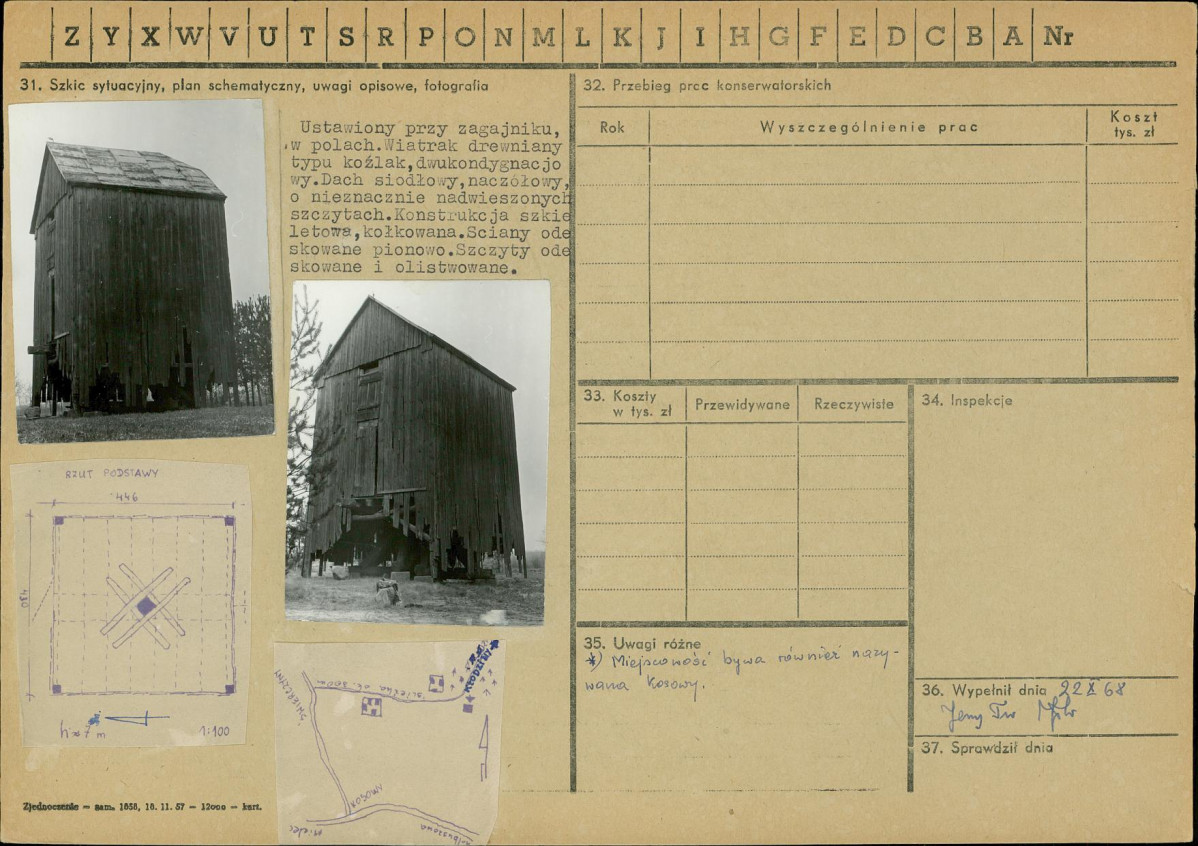 Z Y X W V U T S R P O N M L K J I H G F E D C B A Nr
31. Szkic sytuacyjny, plan schematyczny, uwagi opisowe, fotografia
Ustawiony przy zagajniku,
w polach.Wiatrak drewniany
typu koźlak,dwukondygnacjo
wy.Dach siodłowy,naczółowy,
o nieznacznie nadwieszonych
szczytach.Konstrukcja szkie
letowa,kołkowana.Sciany ode
skowane pionowo.Szczyty ode
skowane i olistwowane.
RZUT PODSTAWY
446
430
1:100
ścieżka ok. 300m
KOSOWY
Mielec
Zjednoczenie — zam. 1858, 18. 11. 57 — 12000 — kart.
32. Przebieg prac konserwatorskich
Rok
Wyszczególnienie prac
Koszt
tys. zł
33. Koszty
w tys. zł
Przewidywane
Rzeczywiste
34. Inspekcje
35. Uwagi różne
*) Miejscowość bywa również nazy-
wana Kosowy.
36. Wypełnił dnia 22 X 68
37. Sprawdził dnia